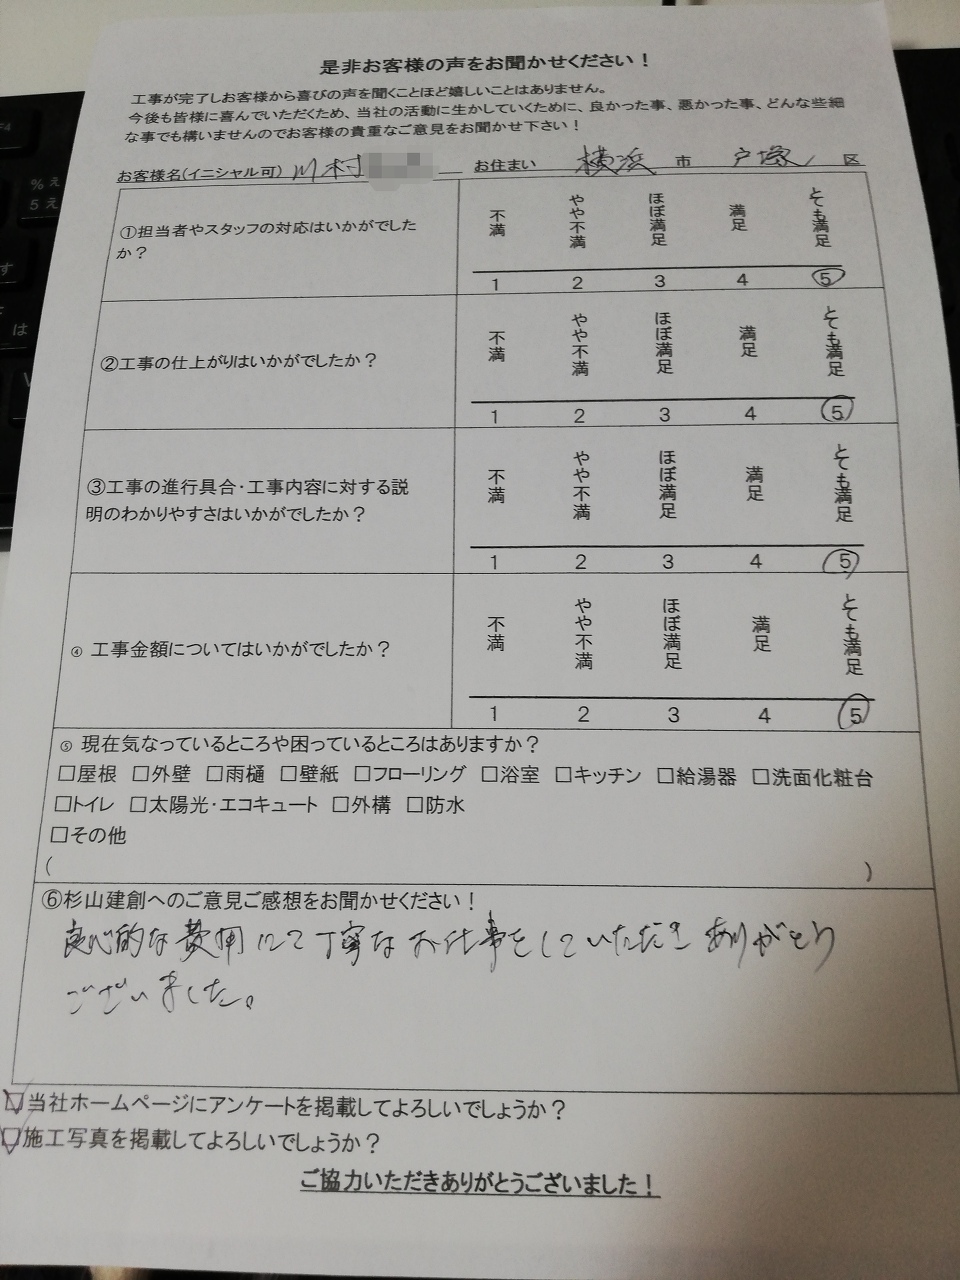 是非お客様の声をお聞かせください！
工事が完了しお客様から喜びの声を聞くことほど嬉しいことはありません。
今後も皆様に喜んでいただくため、当社の活動に生かしていくために、良かった事、悪かった事、どんな些細
な事でも構いませんのでお客様の貴重なご意見をお聞かせ下さい！
お客様名(イニシャル可) 川村 お住まい 横浜 市 戸塚 区
①担当者やスタッフの対応はいかがでした
か？
不満 やや不満 ほぼ満足 満足 とても満足
1 2 3 4 5
②工事の仕上がりはいかがでしたか？
不満 やや不満 ほぼ満足 満足 とても満足
1 2 3 4 5
③工事の進行具合・工事内容に対する説
明のわかりやすさはいかがでしたか？
不満 やや不満 ほぼ満足 満足 とても満足
1 2 3 4 5
④ 工事金額についてはいかがでしたか？
不満 やや不満 ほぼ満足 満足 とても満足
1 2 3 4 5
⑤ 現在気なっているところや困っているところはありますか？
□屋根 □外壁 □雨樋 □壁紙 □フローリング □浴室 □キッチン □給湯器 □洗面化粧台
□トイレ □太陽光・エコキュート □外構 □防水
□その他
( )
⑥杉山建創へのご意見ご感想をお聞かせください！
良心的な費用にて丁寧なお仕事をしていただきありがとう
ございました。
☑当社ホームページにアンケートを掲載してよろしいでしょうか？
☑施工写真を掲載してよろしいでしょうか？
ご協力いただきありがとうございました！